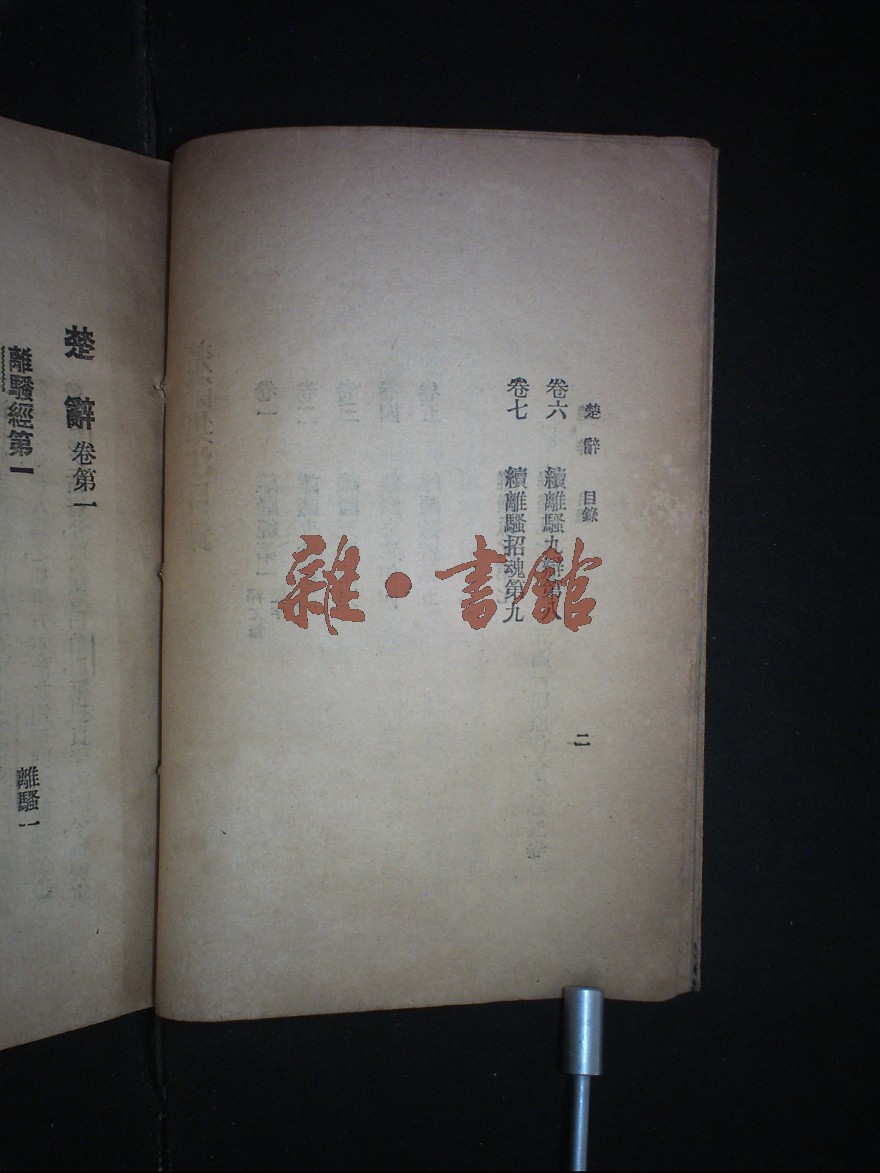 楚辭 目錄
二
卷六 續離騷九辯第八
卷七 續離騷招魂第九
楚辭卷第一
離騷經第一 離騷一
雜·書館